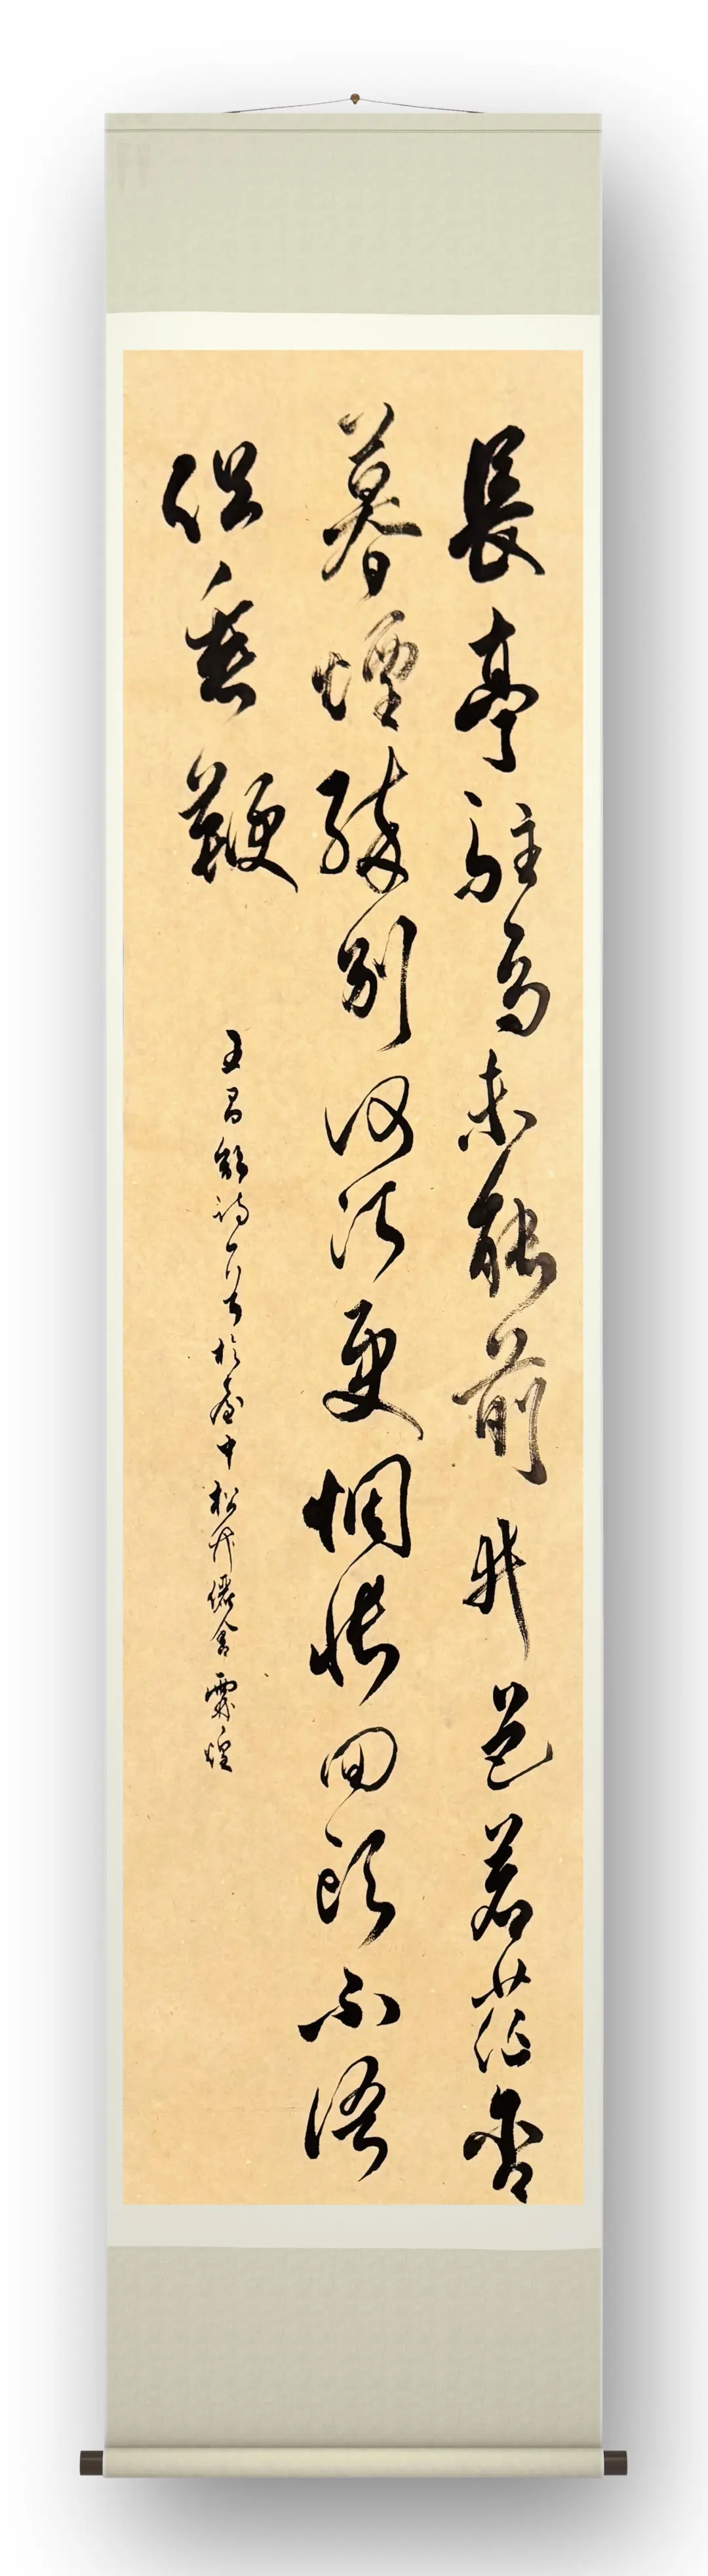 長亭駐馬未能前井邑蒼茫含
暮煙醉別何須更惆悵回頭不語
但垂鞭
王昌齡詩一首於臺中松舍霖煌